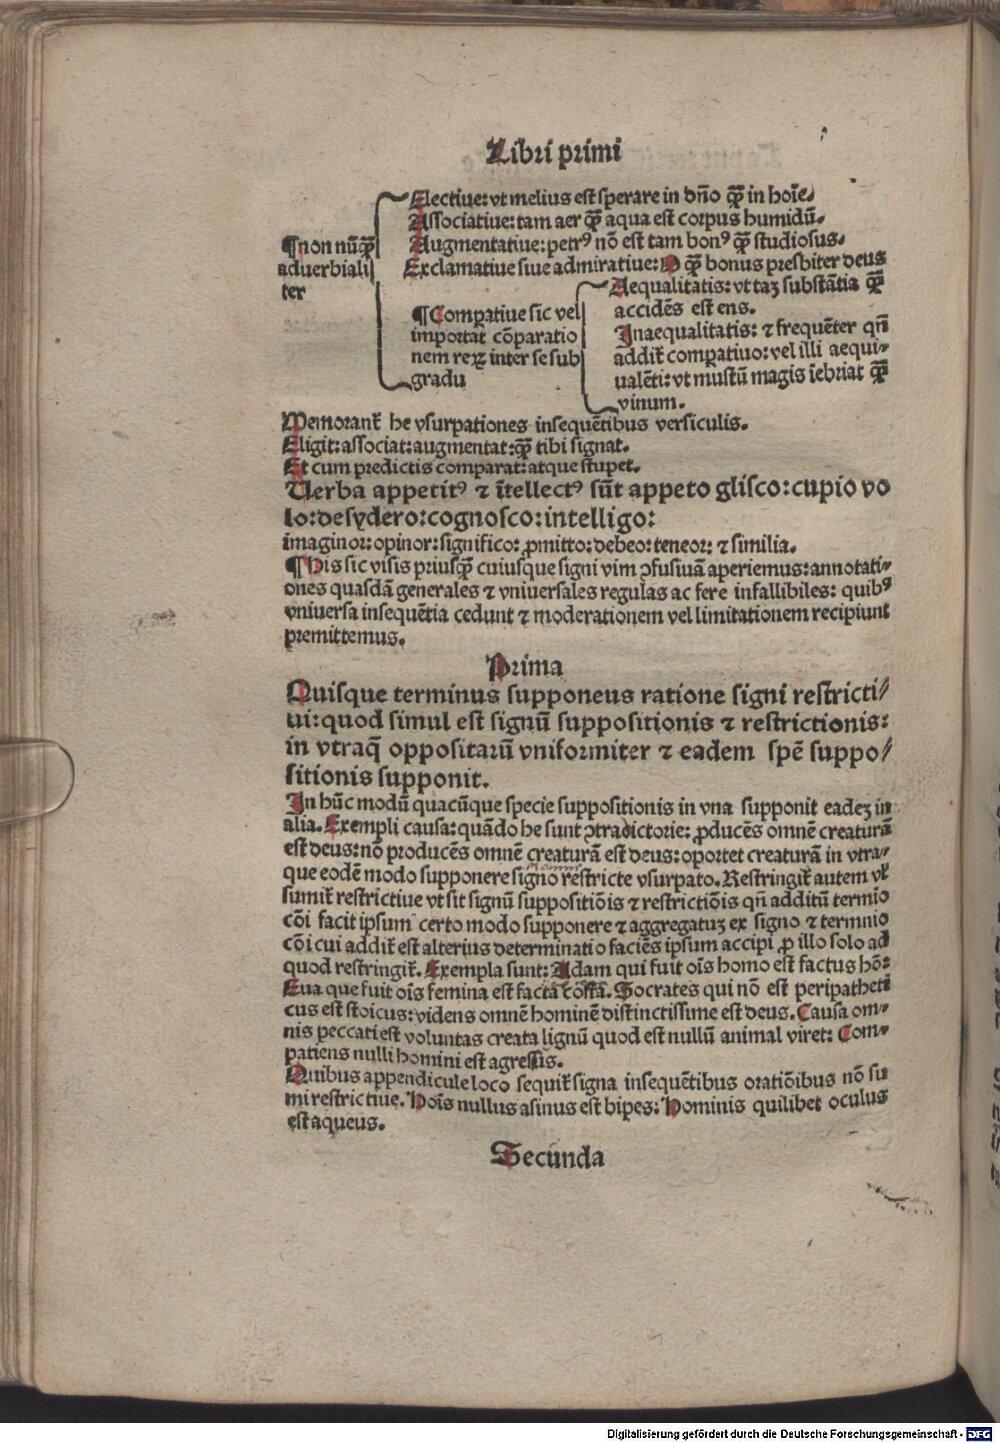 Libri primi
Electiue: vt melius est sperare in dño q̃ꝫ in hoīe⸝
Associatiue: tam aer q̃ꝫ aqua est corpus humidū.
¶non nūq̃ꝫ
aduerbiali
ter
Augmentatiue: petrꝰ nō est tam bonꝰ q̃ꝫ studiosus.
Exclamatiue siue admiratiue: O q̃ꝫ bonus presbiter deus
¶Comꝑatiue sic vel
importat cōparatio
nem reꝝ inter se sub
gradu
Aequalitatis: vt taꝫ substātia q̃ꝫ
accidēs est ens.
Inaequalitatis: ⁊ frequēter qñ
addit̃ comꝑatiuo: vel illi aequi⸗
ualēti: vt mustū magis īebriat q̃ꝫ
vinum.
Memorant̃ he vsurpationes insequētibus versiculis.
Eligit: associat: augmentat: q̃ꝫ tibi signat.
Et cum predictis comparat: atque stupet.
Uerba appetitꝰ ⁊ ītellectꝰ sūt appeto glisco: cupio vo
lo: desydero: cognosco: intelligo:
imaginor: opinor: significo: ꝓmitto: debeo: teneor: ⁊ similia.
¶His sic visis priusq̃ꝫ cuiusque signi vim ꝯfusiuā aperiemus: annotati⸗
ones quasdā generales ⁊ vniuersales regulas ac fere infallibiles: quibꝰ
vniuersa insequētia cedunt ⁊ moderationem vel limitationem recipiunt
premittemus.
Prima
Quisque terminus supponeus ratione signi restricti⸗
ui: quod simul est signū suppositionis ⁊ restrictionis:
in vtraq̃ oppositarū vniformiter ⁊ eadem spē suppo⸗
sitionis supponit.
In hūc modū quacūque specie suppositionis in vna supponit eadeꝫ in
alia. Exempli causa: quādo he sunt ꝯtradictorie: ꝓducēs omnē creaturā
est deus: nō producēs omnē creaturā est deus: oportet creaturā in vtra⸗
que eodē modo supponere signo restricte vsurpato. Restringit̃ autem vĺ
sumit̃ restrictiue vt sit signū suppositiōis ⁊ restrictiōis qñ additū termīo
cōi facit ipsum certo modo supponere ⁊ aggregatuꝫ ex signo ⁊ termnio
cōi cui addit̃ est alterius determinatio faciēs ipsum accipi ꝓ illo solo ad
quod restringit̃. Exempla sunt: Adam qui fuit oīs homo est factus hō:
Eua que fuit oīs femina est facta costa. Socrates qui nō est peripatheti
cus est stoicus: videns omnē hominē distinctissime est deus. Causa om⸗
nis peccati est voluntas creata lignū quod est nullū animal viret: Com⸗
patiens nulli homini est agressis.
Quibus appendicule loco sequit̃ signa insequētibus oratiōibus nō su
mi restrictiue. Hoīs nullus asinus est bipes: Hominis quilibet oculus
est aqueus.
Secunda
Digitalisierung gefördert durch die Deutsche Forschungsgemeinschaft - DFG